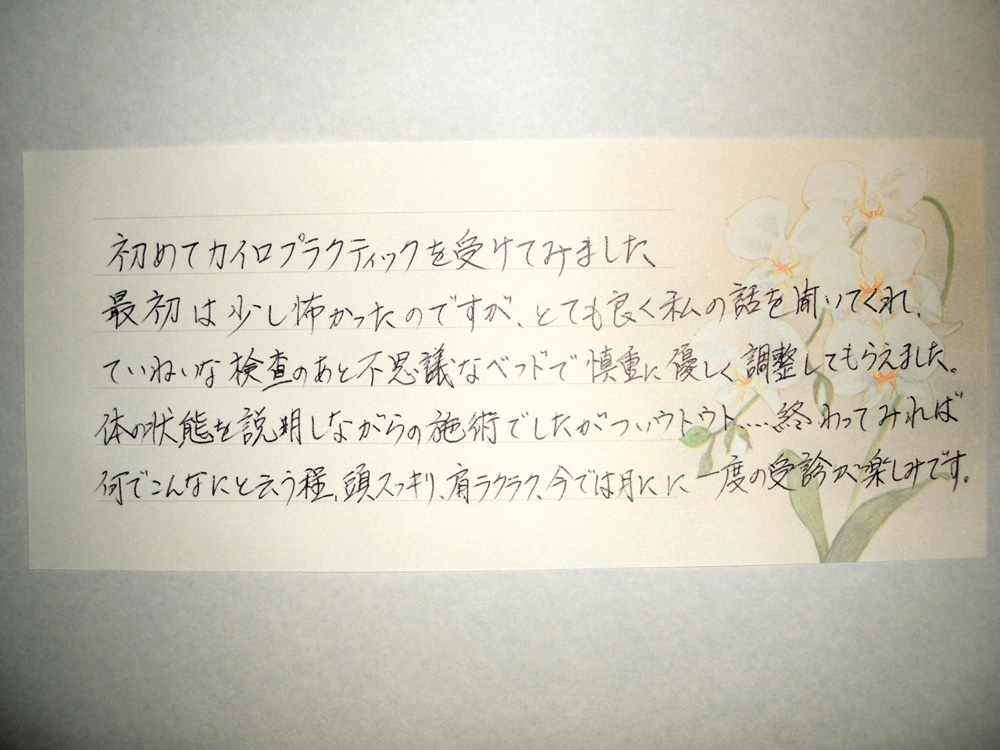 初めてカイロプラクティックを受けてみました
最初は少し怖かったのですが、とても良く私の話を聞いてくれ、
ていねいな検査のあと不思議なベッドで慎重に優しく調整してもらえました。
体の状態を説明しながらの施術でしたがついウトウト…終わってみれば
何でこんなにと云う程、頭スッキリ、肩ラクラク、今では月にに一度の受診が楽しみです。